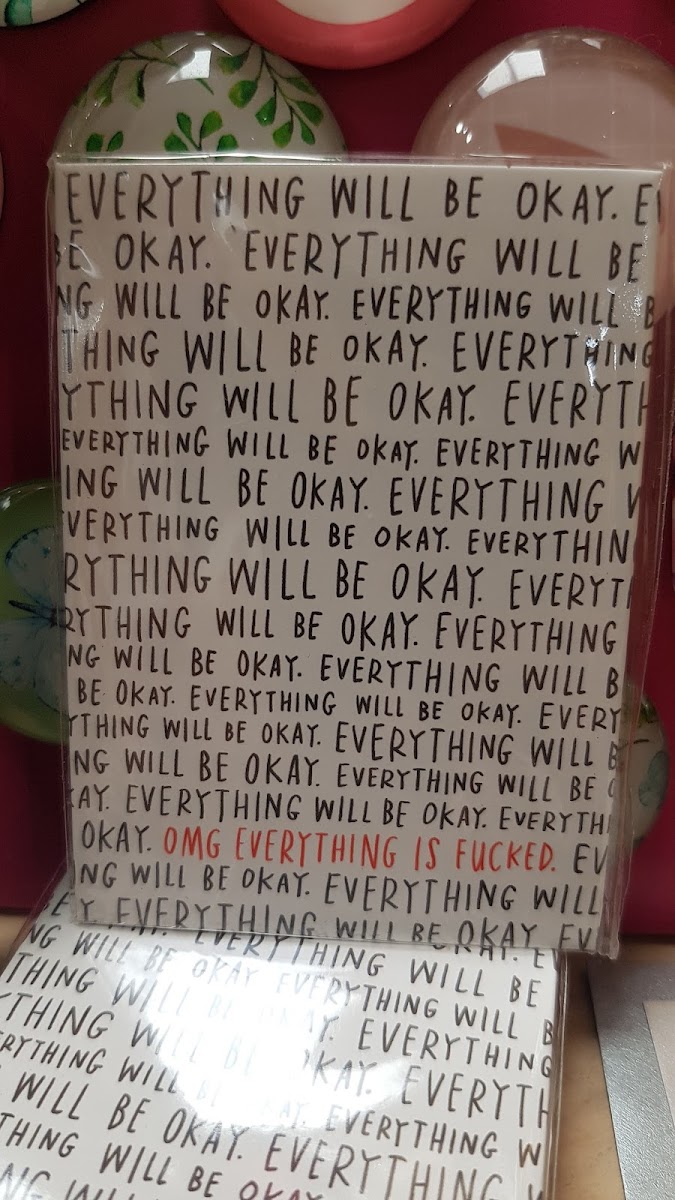 EVERYTHING WILL BE OKAY. E
BE OKAY. EVERYTHING WILL BE
NG WILL BE OKAY. EVERYTHING WILL B
THING WILL BE OKAY. EVERYTHING
YTHING WILL BE OKAY. EVERYTH
EVERYTHING WILL BE OKAY. EVERYTHING W
ING WILL BE OKAY. EVERYTHING W
VERYTHING WILL BE OKAY. EVERYTHIN
RYTHING WILL BE OKAY. EVERYT
RYTHING WILL BE OKAY. EVERYTHING
NG WILL BE OKAY. EVERYTHING WILL B
BE OKAY. EVERYTHING WILL BE OKAY. EVERY
YTHING WILL BE OKAY. EVERYTHING WILL B
NG WILL BE OKAY. EVERYTHING WILL BE O
KAY. EVERYTHING WILL BE OKAY. EVERYTHI
OKAY. OMG EVERYTHING IS FUCKED. EV
NG WILL BE OKAY. EVERYTHING WILL
Y. EVERYTHING WILL BE OKAY. EV
BE OKAY. EVERYTHING WILL BE
NG WILL BE OKAY. EVERYTHING WILL B
THING WILL BE OKAY. EVERYTHING
YTHING WILL BE OKAY. EVERYTH
ERYTHING WILL BE OKAY. EVERYTHING W
WILL BE OKAY. EVERYTHING
THING WILL BE OKAY.
NG WILL